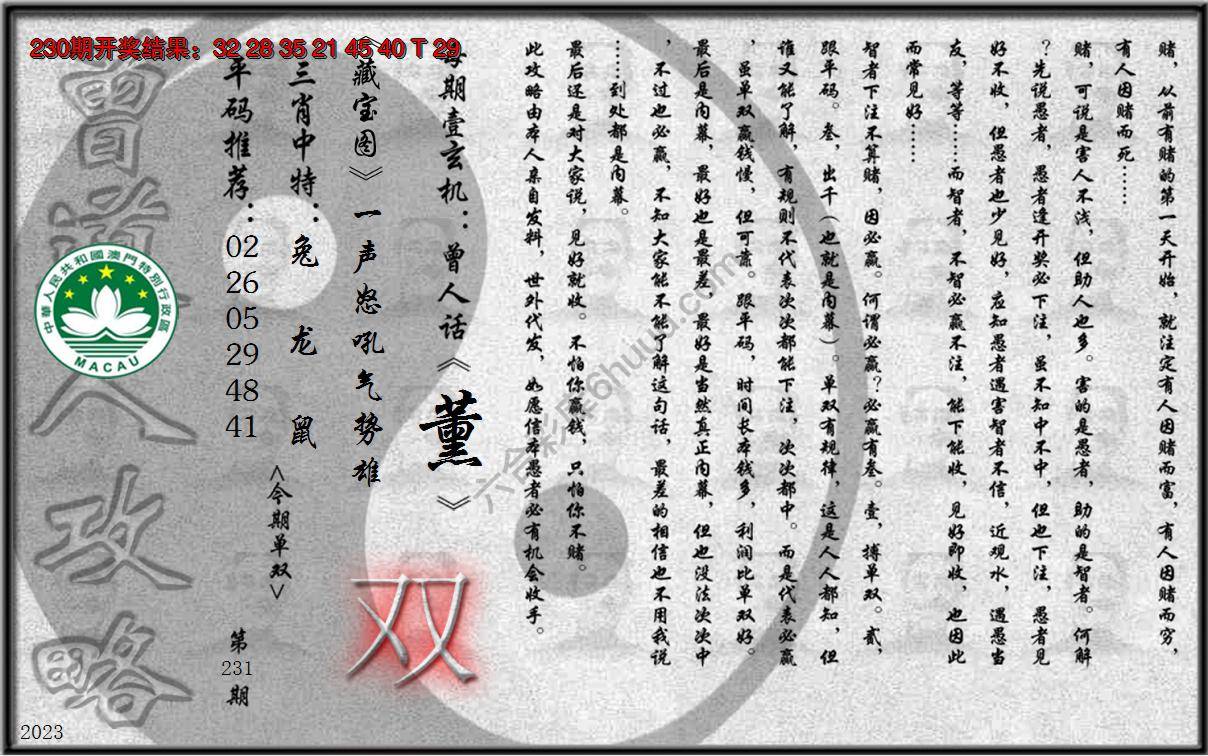 230期开奖结果：32 28 35 21 45 40 T 29
赌，从前有赌的第一天开始，就注定有人因赌而富，有人因赌而穷，
有人因赌而死……
赌，可说是害人不浅，但助人也多。害的是愚者，助的是智者。何解
？先说愚者，愚者逢开奖必下注，虽不知中不中，但也下注，愚者见
好不收，但愚者也少见好，应知愚者遇害智者不信，近观水，遇愚当
友，等等……而智者，不智必赢不注，能下能收，见好即收，也因此
而常见好……
智者下注不算赌，因必赢。何谓必赢？必赢有叁。壹，搏单双。贰，
跟平码。叁，出千（也就是内幕）。单双有规律，这是人人都知，但
谁又能了解，有规则不代表次次都能下注，次次都中。而是代表必赢
，虽单双赢钱慢，但可靠。跟平码，时间长本钱多，利润比单双好。
最后是内幕，最好也是最差，最好是当然真正内幕，但也没法次次中
，不过也必赢，不知大家能不能了解这句话，最差的相信也不用我说
……到处都是内幕。
最后还是对大家说，见好就收。不怕你赢钱，只怕你不赌。
此攻略由本人亲自发料，世外代发，如愿信本愚者必有机会收手。
每期壹玄机：曾人话《薰》
《藏宝图》一声怒吼气势雄
双
三肖中特：兔 龙 鼠
<今期单双>
平码推荐：02 26 05 29 48 41
第231期
曾道人攻略
中華人民共和國澳門特別行政區
MACAU
2023
六合彩库6huuu.com